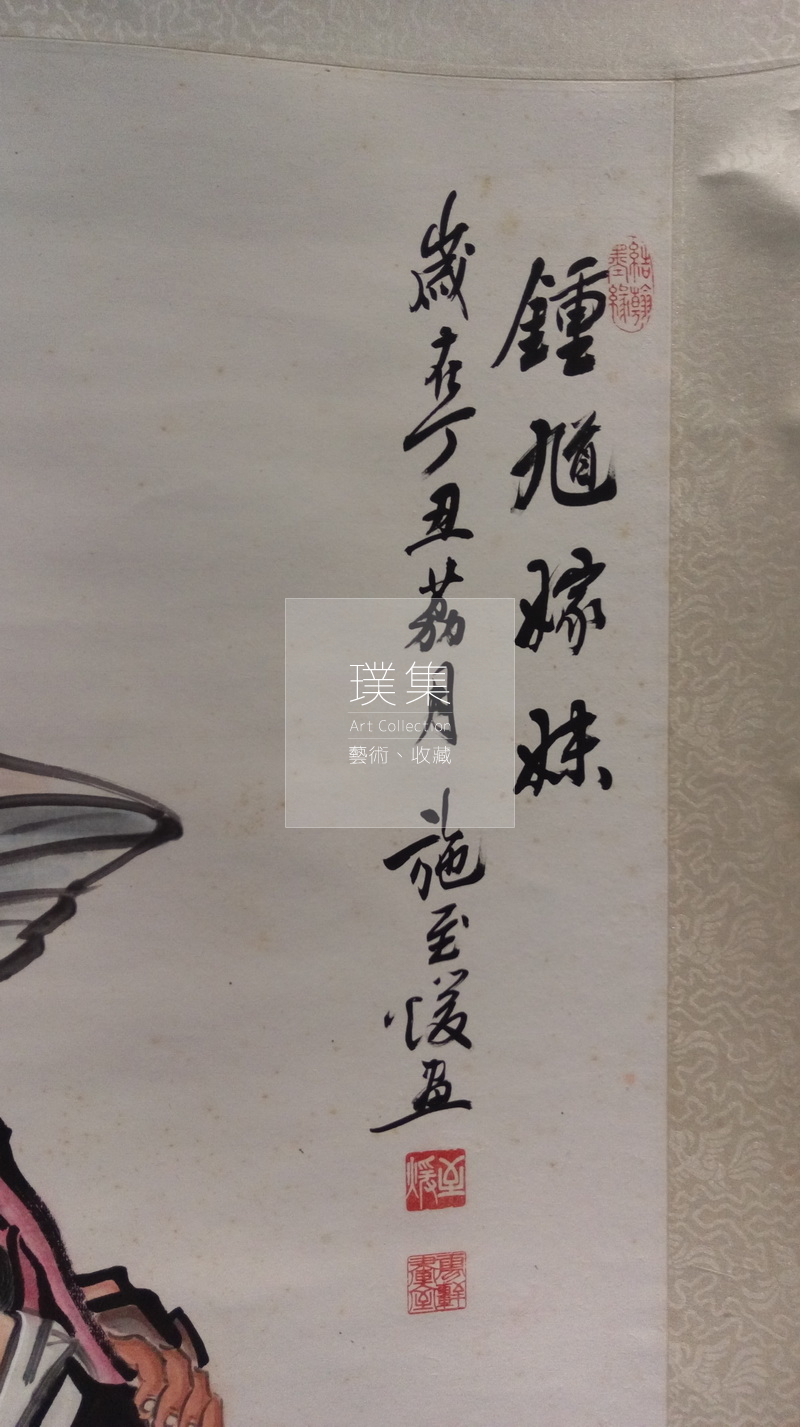 結翰墨緣
鍾馗嫁妹
歲在丁丑荔月 施至煖畫
至煖
璞集
Art Collection
藝術、收藏